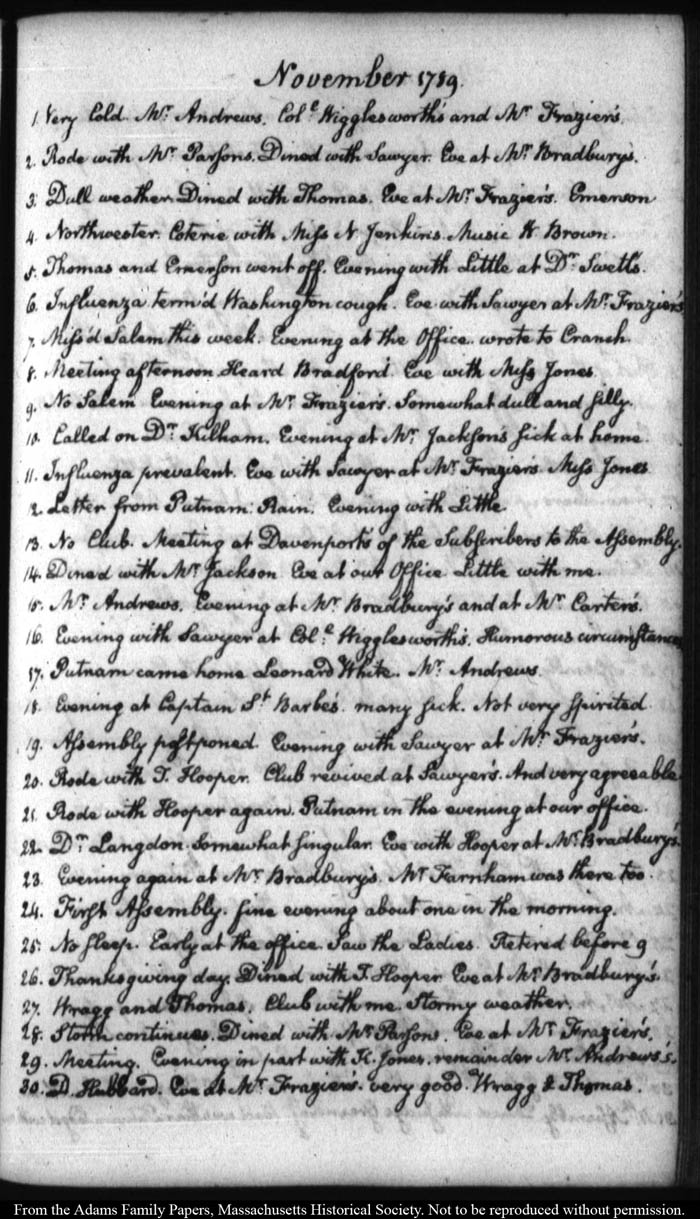 November 1789.
1. Very Cold. Mr. Andrews. Coll. Wigglesworth's and Mr. Frazier's.
2. Rode with Mr. Parsons. Dined with Sawyer. Eve at Mr. Bradbury's.
3. Dull weather. Dined with Thomas. Eve at Mr. Frazier's. Emerson
4. Northwester. Coterie with Miss N Jenkins. Music H. Brown.
5. Thomas and Emerson went off. Evening with Little at Dr. Swett's.
6. Influenza term'd Washington cough. Eve with Sawyer at Mr. Frazier's
7. Miss'd Salem this week. Evening at the Office. wrote to Cranch.
8. Meeting afternoon. Heard Bradford. Eve with Miss Jones.
9. No Salem. Evening at Mr. Frazier's. Somewhat dull and silly.
10. Called on Dr. Kilham. Evening at Mr. Jackson's sick at home.
11. Influenza prevalent. Eve with Sawyer at Mr. Frazier's. Miss Jones
12. Letter from Putnam. Rain. Evening with Little
13. No Club. Meeting at Davenport's of the Subscribers to the Assembly.
14. Dined with Mr. Jackson. Eve at our Office. Little with me.
15. Mr. Andrews. Evening at Mr. Bradbury's and at Mr. Carter's.
16. Evening with Sawyer at Coll. Wigglesworth's. Humorous circumstances
17. Putnam came home. Leonard White. Mr. Andrews.
18. Evening at Captain St. Barbe's. many sick. Not very spirited.
19. Assembly postponed. Evening with Sawyer at Mr. Frazier's.
20. Rode with T. Hooper. Club revived at Sawyer's. And very agreeable
21. Rode with Hooper again. Putnam in the evening at our office.
22. Dr. Langdon. Somewhat singular. Eve with Hooper at Mr. Bradbury's.
23. Evening again at Mr. Bradbury's. Mr. Farnham was there too.
24. First Assembly. fine evening about one in the morning.
25. No sleep. Early at the office. Saw the Ladies. Retired before 9
26. Thanksgiving day. Dined with T. Hooper. Eve at Mr. Bradbury's.
27. Wragg and Thomas. Club with me. Stormy weather.
28. Storm continues. Dined with Mr. Parsons. Eve at Mr. Frazier's.
29. Meeting. Evening in part with K. Jones. remainder Mr. Andrews's.
30. D. Hubbard. Eve at Mr. Frazier's. very good. Wragg & Thomas.
From the Adams Family Papers, Massachusetts Historical Society. Not to be reproduced without permission.